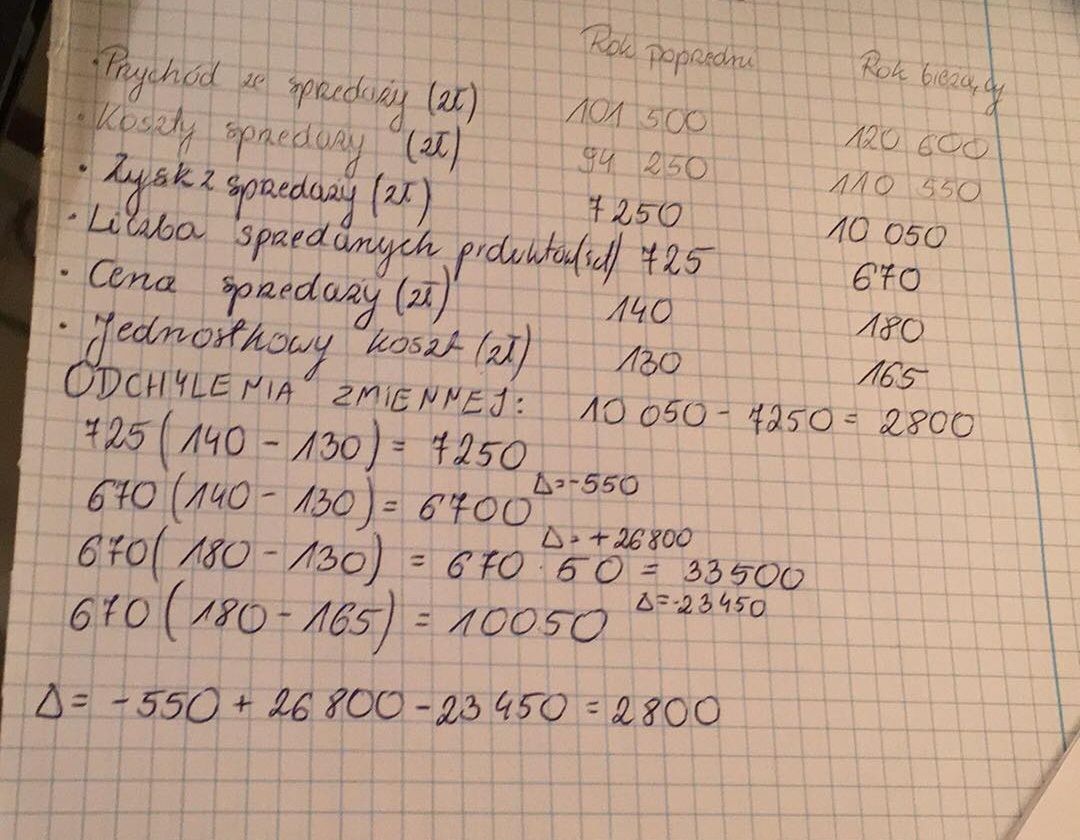 Rok poprzedni Rok bieżący
• Przychód ze sprzedaży (zł) 101 500 120 600
• Koszty sprzedaży (zł) 94 250 110 550
• Zysk z sprzedaży (zł) 7250 10 050
• Liczba sprzedanych produktów(szt) 725 670
• Cena sprzedaży (zł) 140 180
• Jednostkowy koszt (zł) 130 165
ODCHYLENIA ZMIENNEJ: 10 050 - 7250 = 2800
725 (140 - 130) = 7250
670 (140 - 130) = 6700 Δ=-550
670 (180 - 130) = 670 · 50 = 33500 Δ=+26800
670 (180 - 165) = 10050 Δ=-23450
Δ= -550 + 26 800 - 23 450 = 2800